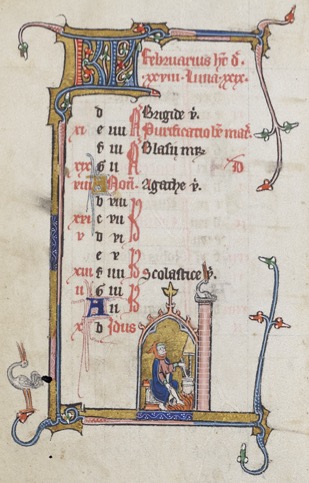 KL Februarius hт d.
xxviii. Luna. xxix.
d Brigide v.
xi e iiii N Purificatio be mar.
f iii N Blasii mr.
xix g ii N D
viii A Non. Agathe v.
b viii
xvi c vii
v d vi
e v
xiii f iiii Scolastice v.
ii g iii
A ii
x b Idus